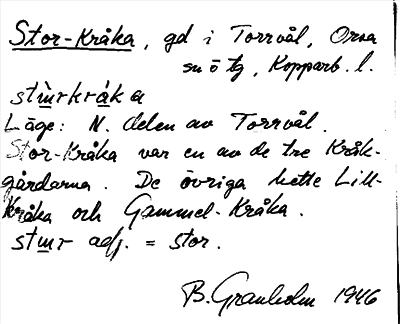 Stor-Kråka, gd i Torrvål, Orsa
sn ö tg, Kopparb. l.
Läge: N. delen av Torrvål.
Stor-Kråka var en av de tre Kråk-
gårdarna. De övriga hette Lill-
Kråka och Gammel-Kråka.
adj. = stor.
B. Granholm 1946